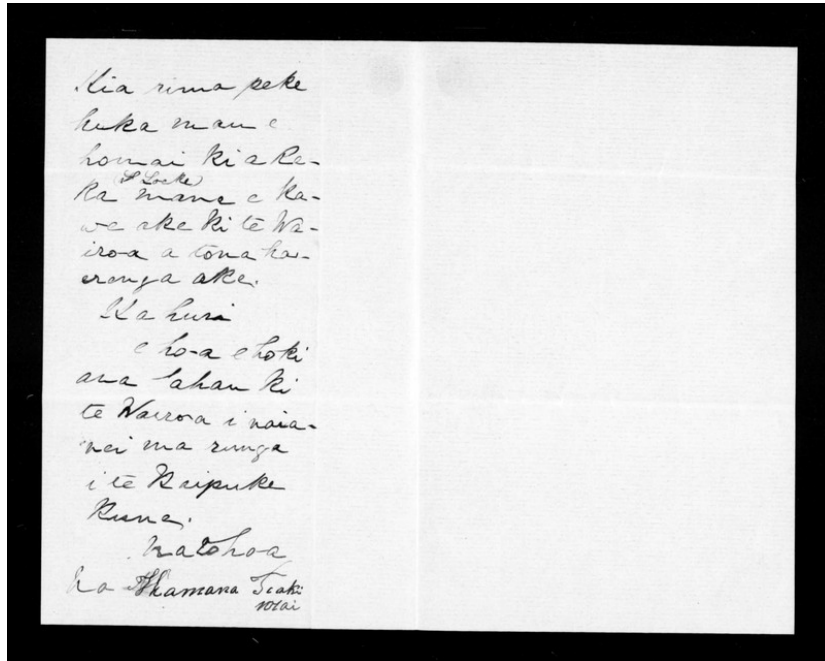 Kia rima peke
huka mau e
homai ki a Re-
(S Locke)
ka mana e ka-
we ake ki te Wa-
iroa a tona ha-
erenga ake.
Ka huri
e hoa e hoki
ana ahau ki
te Wairoa i naia-
nei ma runga
i te Kaipuke
Kune.
Na to hoa
Na Hamana Tiaki
wai